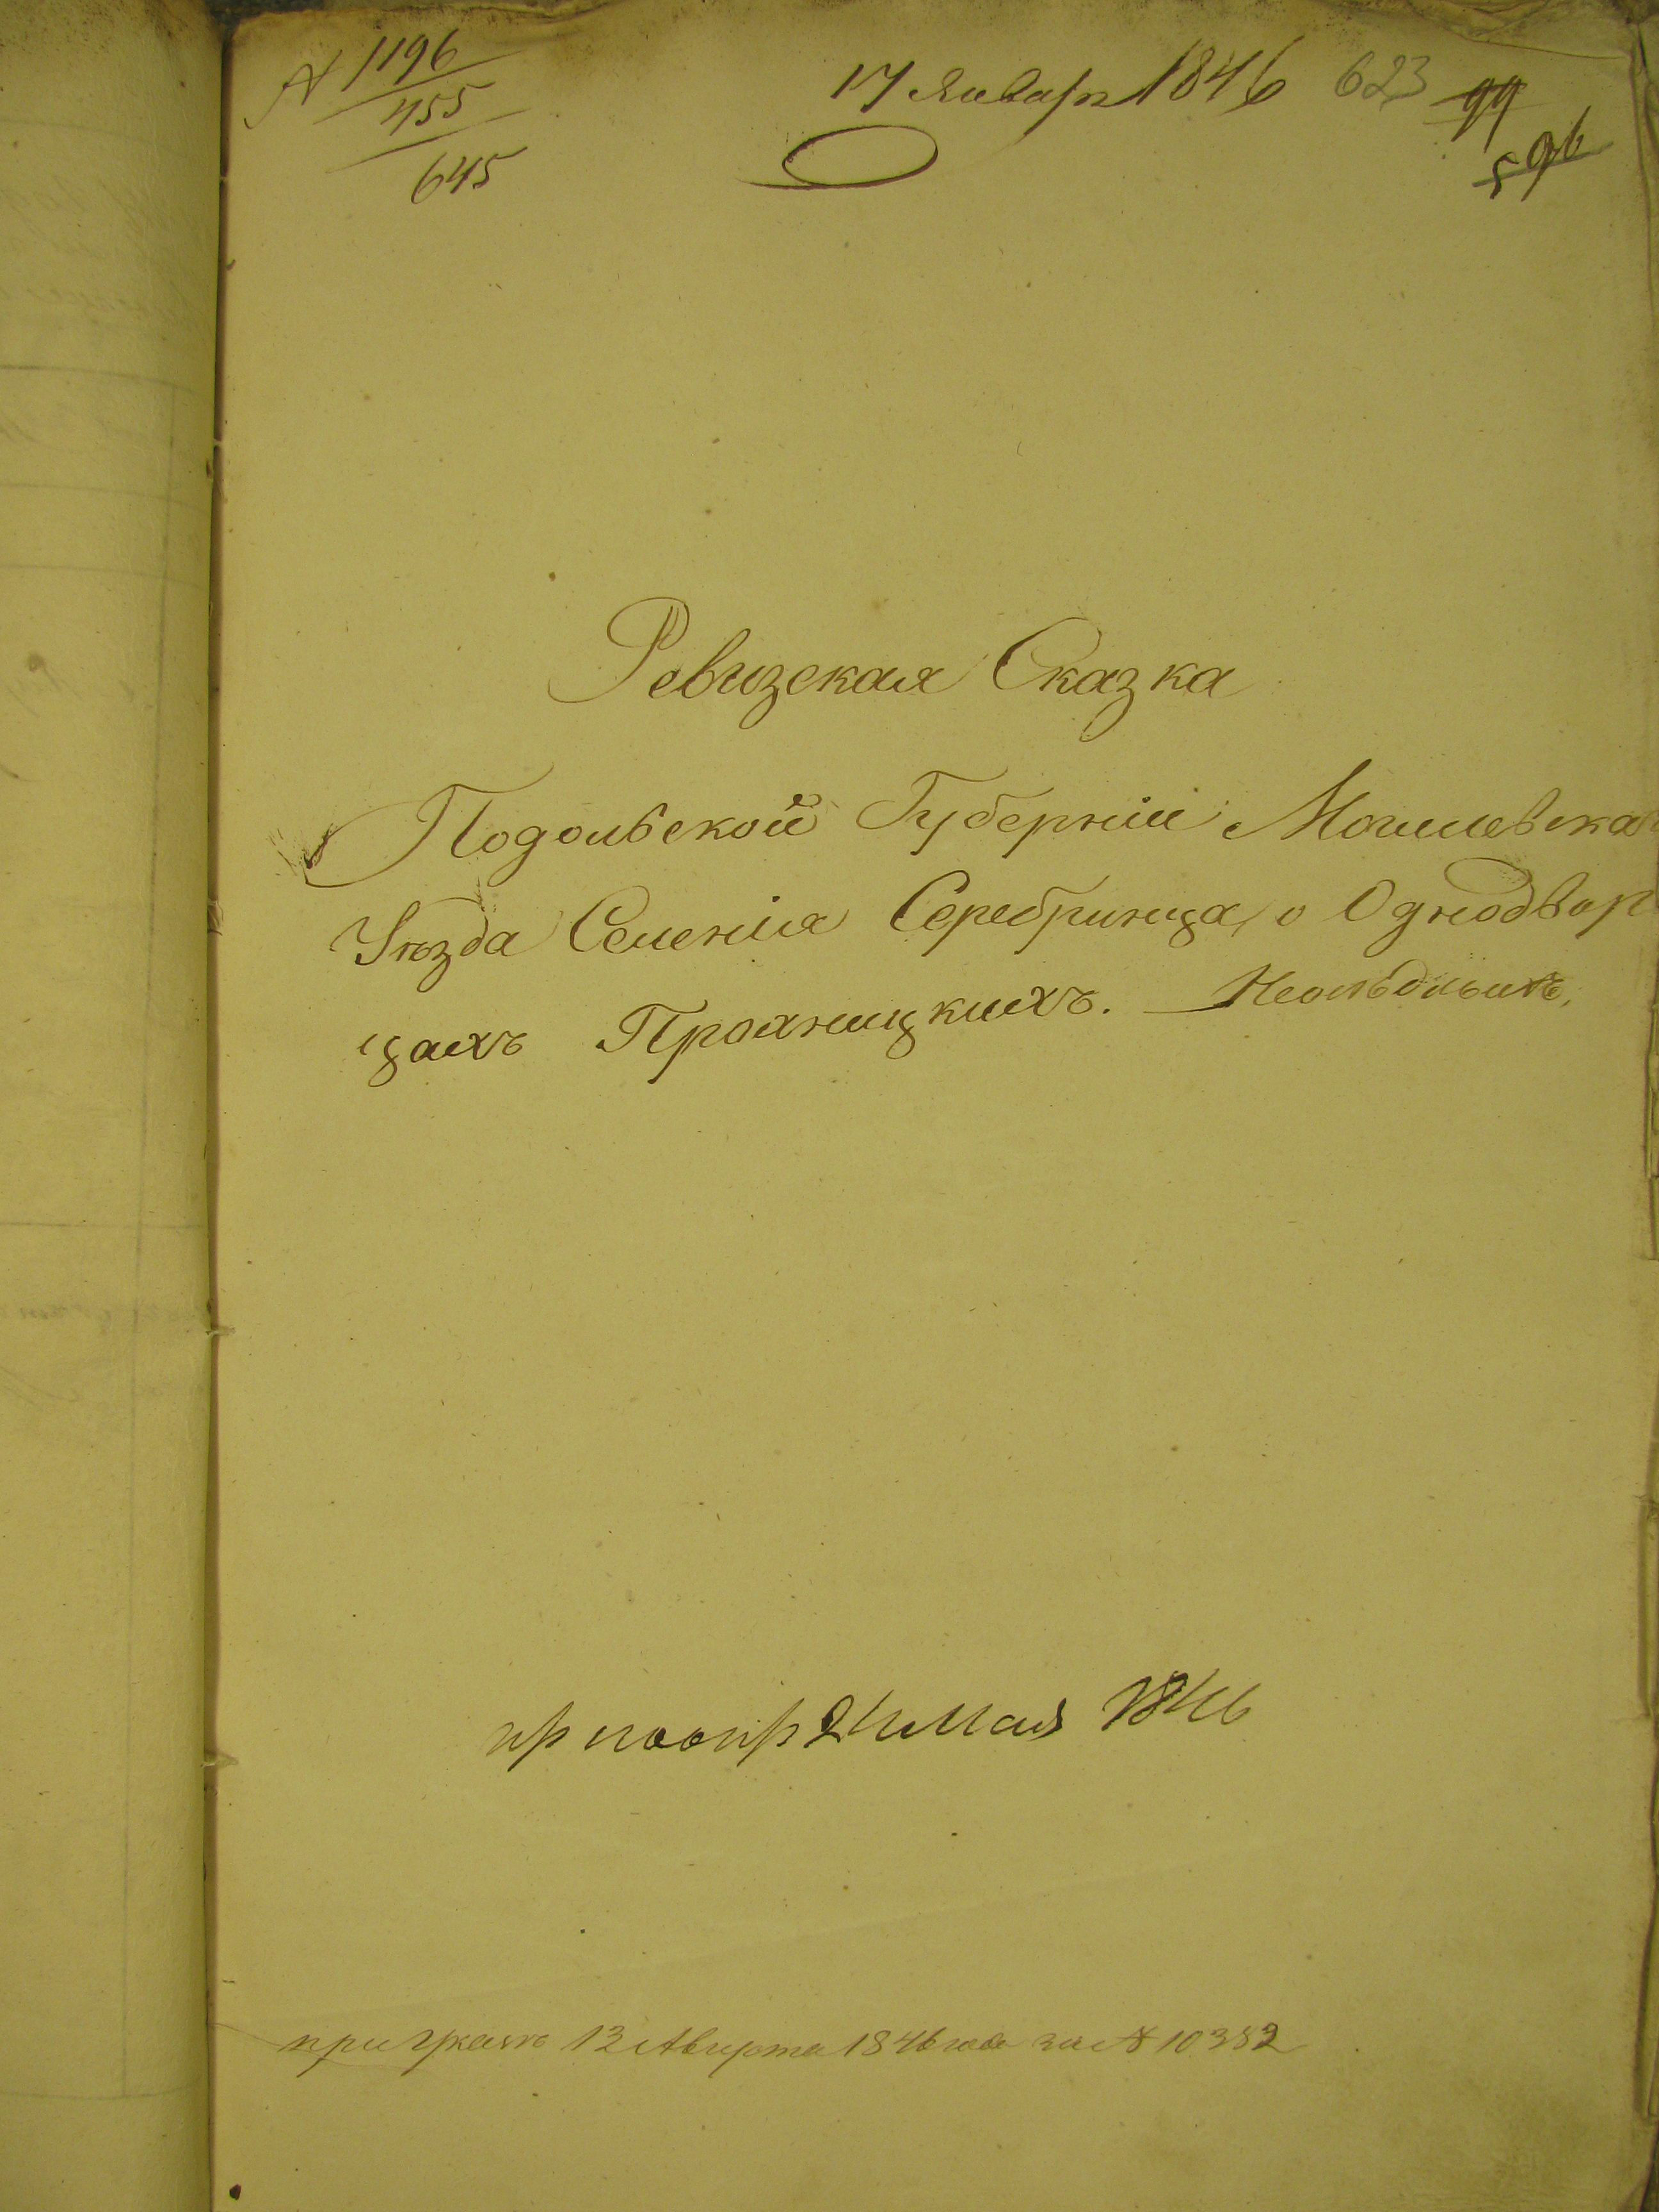 № 1196
455
645
17 Январ 1846 623 99
596
Ревизская Сказка
Подольской Губерніи Могилевска
Уѣзда Селенія Серебринца, о Однодвор
цахъ Прохницкихъ.
24 Мая 1846
при указѣ 13 Августа 1846 года за № 10352